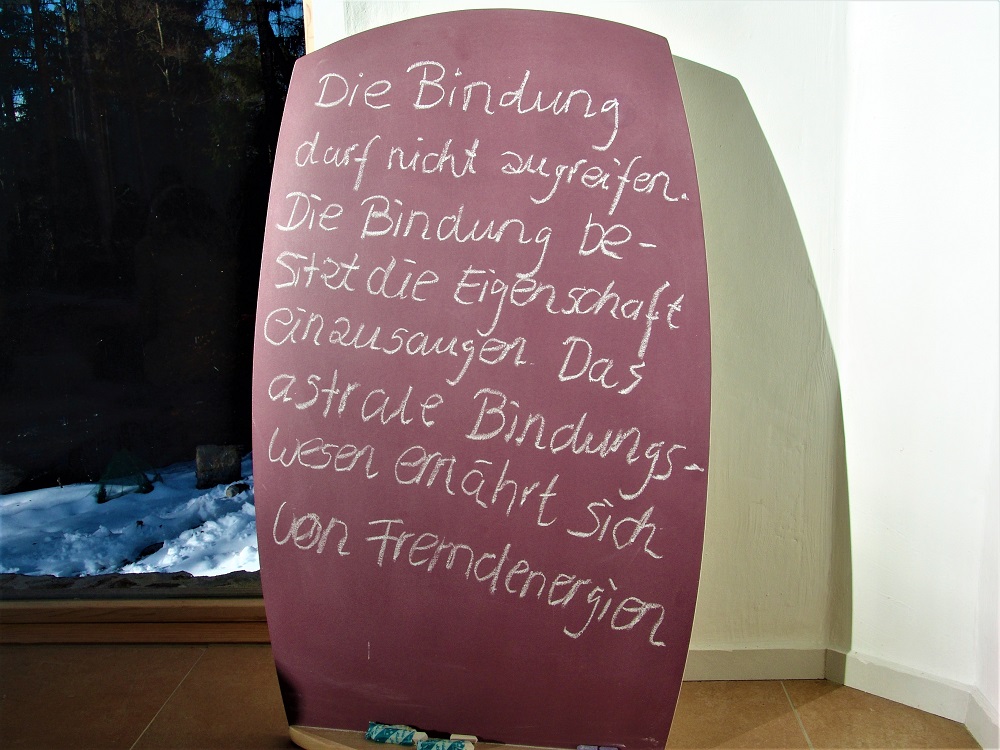 Die Bindung
darf nicht zugreifen.
Die Bindung be-
sitzt die Eigenschaft
einzusaugen. Das
astrale Bindungs-
wesen ernährt sich
von Fremdenergien